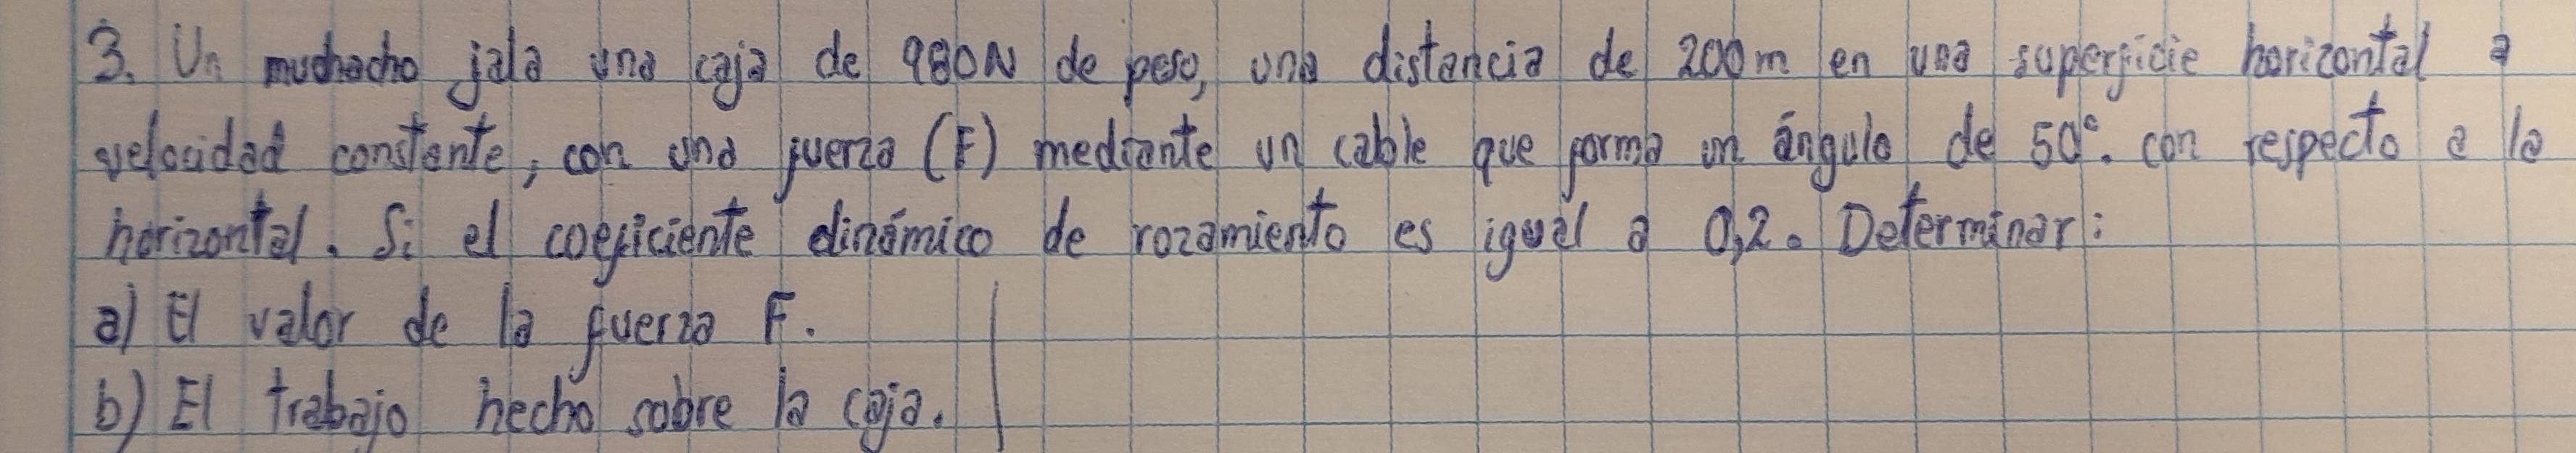 3. Un muchacho jala una caja de 980N de peso, una distancia de 200m en una superficie horizontal a
velocidad constante, con una fuerza (F) mediante un cable que forma un ángulo de 50°. con respecto a la
horizontal. Si el coeficiente dinámico de rozamiento es igual a 0,2. Determinar:
a) El valor de la fuerza F.
b) El trabajo hecho sobre la caja.